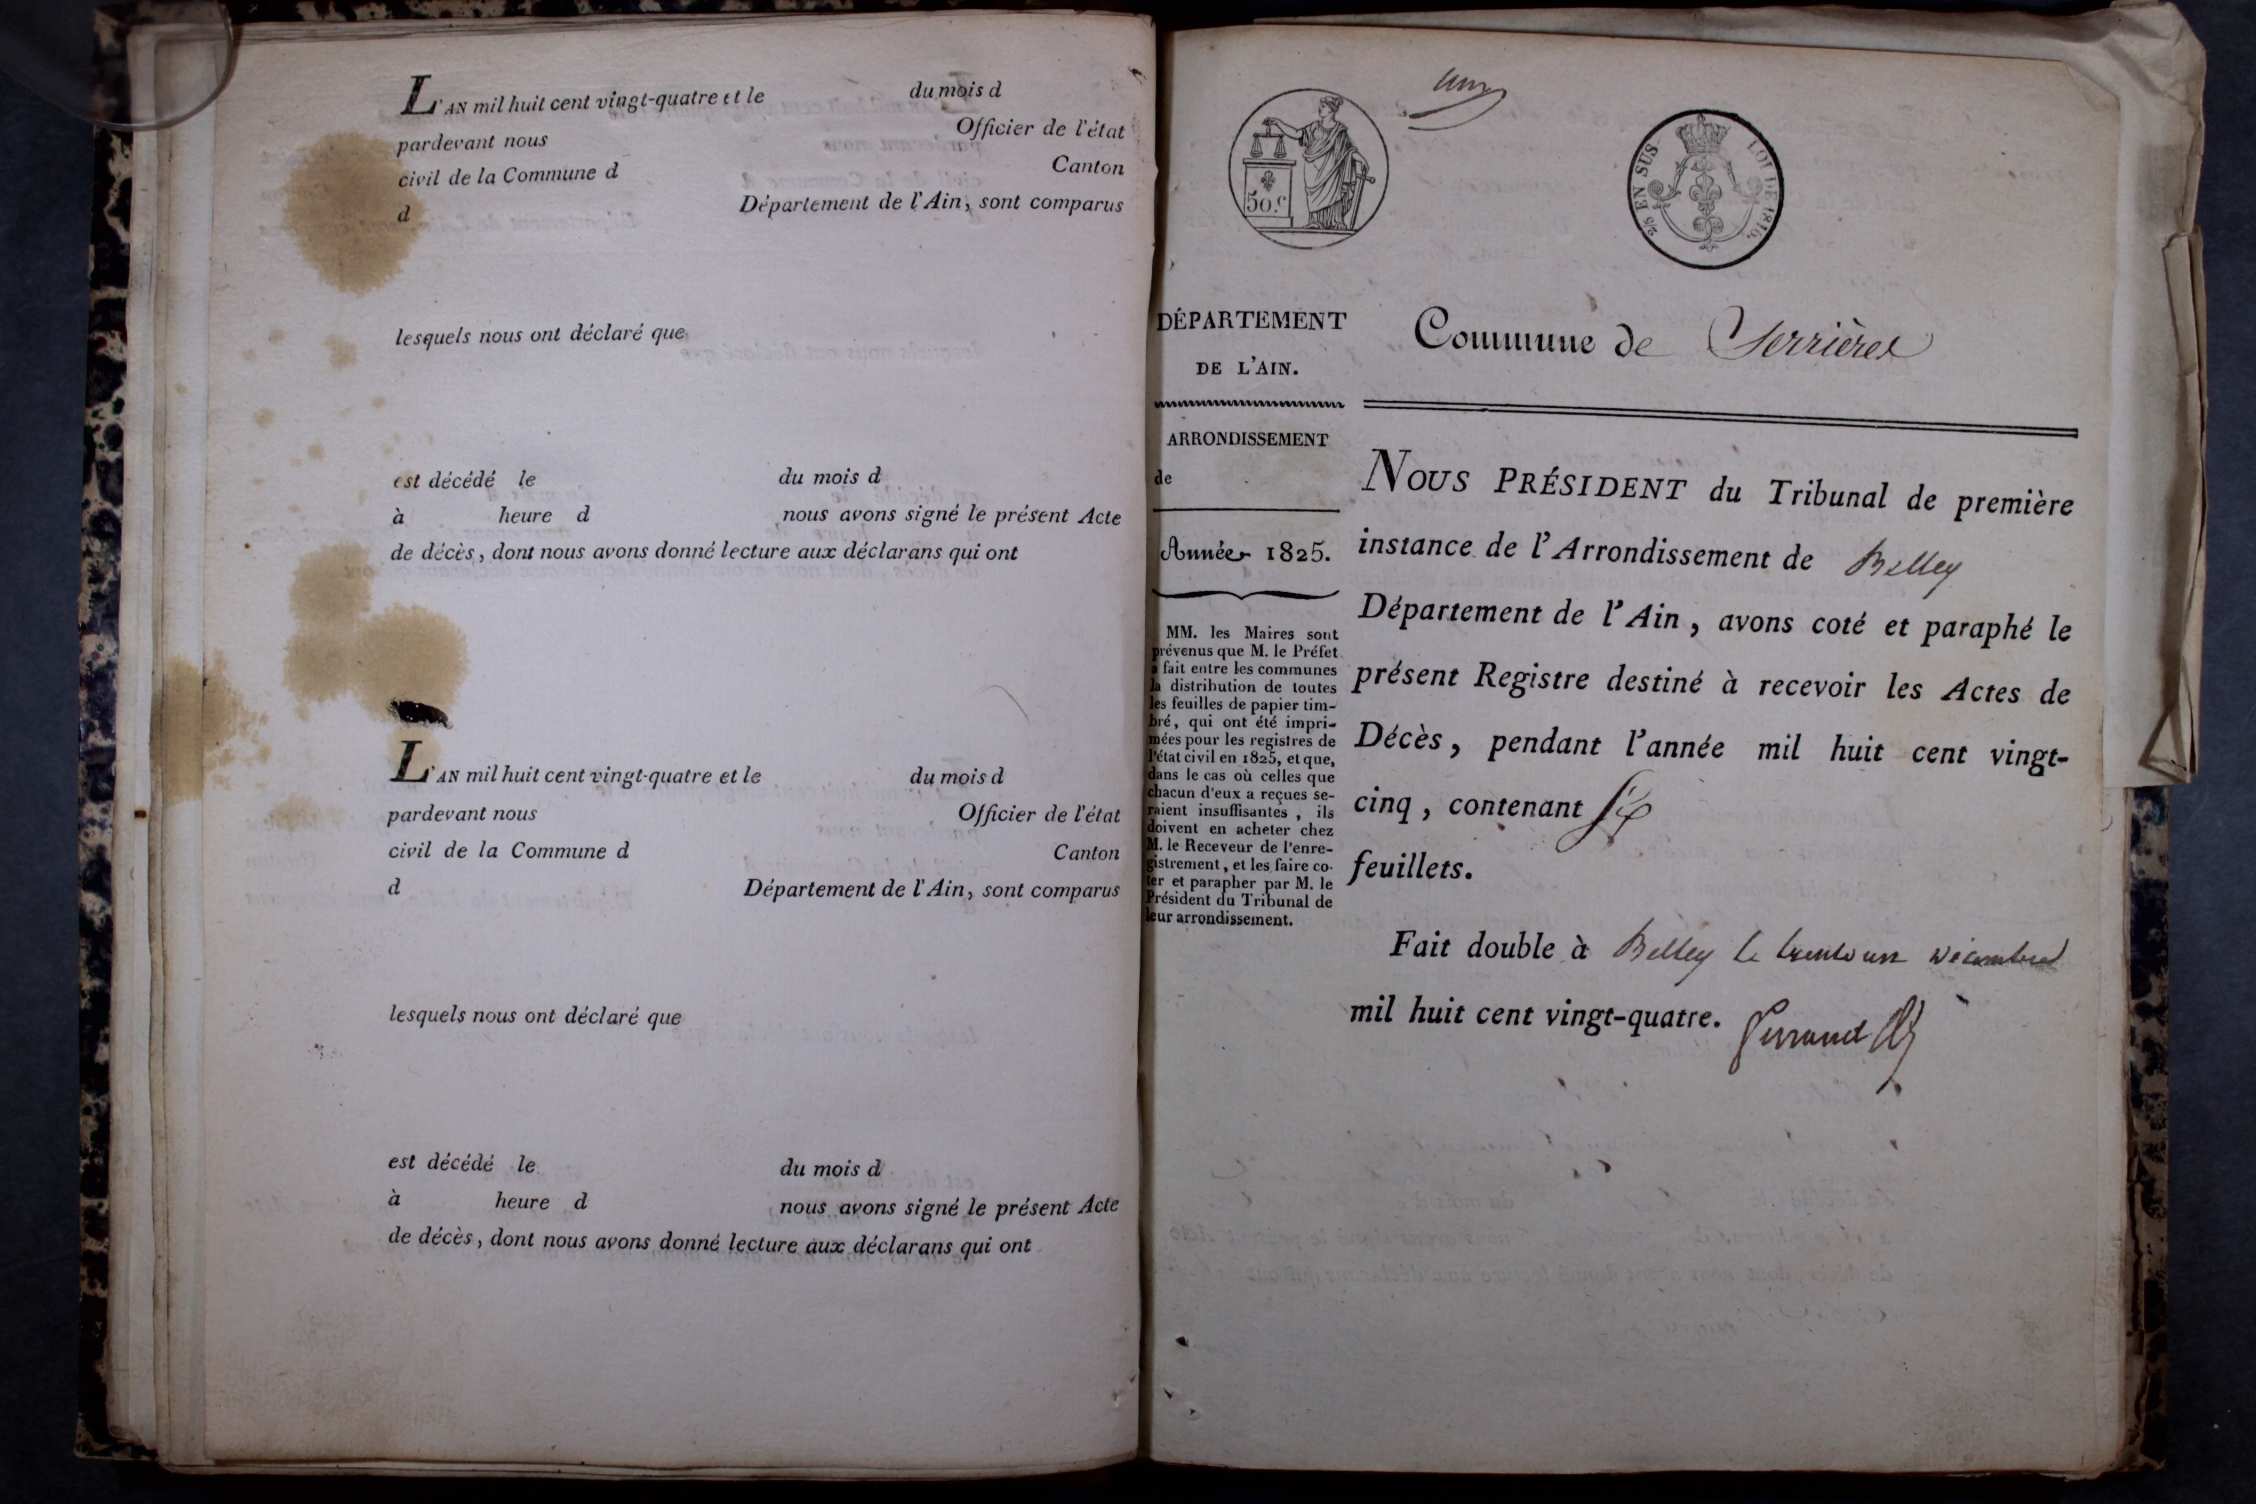 L'AN mil huit cent vingt-quatre et le du mois d
pardevant nous Officier de l'état
civil de la Commune d Canton
d Département de l'Ain, sont comparus
lesquels nous ont déclaré que
est décédé le du mois d
à heure d nous avons signé le présent Acte
de décès, dont nous avons donné lecture aux déclarans qui ont
L'AN mil huit cent vingt-quatre et le du mois d
pardevant nous Officier de l'état
civil de la Commune d Canton
d Département de l'Ain, sont comparus
lesquels nous ont déclaré que
est décédé le du mois d
à heure d nous avons signé le présent Acte
de décès, dont nous avons donné lecture aux déclarans qui ont
50.c
2/5 EN SUS LOI DE 1816.
DÉPARTEMENT
DE L'AIN.
ARRONDISSEMENT
de
Année 1825.
MM. les Maires sont
prévenus que M. le Préfet
a fait entre les communes
la distribution de toutes
les feuilles de papier tim-
bré, qui ont été impri-
mées pour les registres de
l'état civil en 1825, et que,
dans le cas où celles que
chacun d'eux a reçues se-
raient insuffisantes, ils
doivent en acheter chez
M. le Receveur de l'enre-
gistrement, et les faire co-
ter et parapher par M. le
Président du Tribunal de
leur arrondissement.
Commune de Serrières
NOUS PRÉSIDENT du Tribunal de première
instance de l'Arrondissement de Belley
Département de l'Ain, avons coté et paraphé le
présent Registre destiné à recevoir les Actes de
Décès, pendant l'année mil huit cent vingt-
cinq, contenant Six
feuillets.
Fait double à Belley le trente un décembre
mil huit cent vingt-quatre.